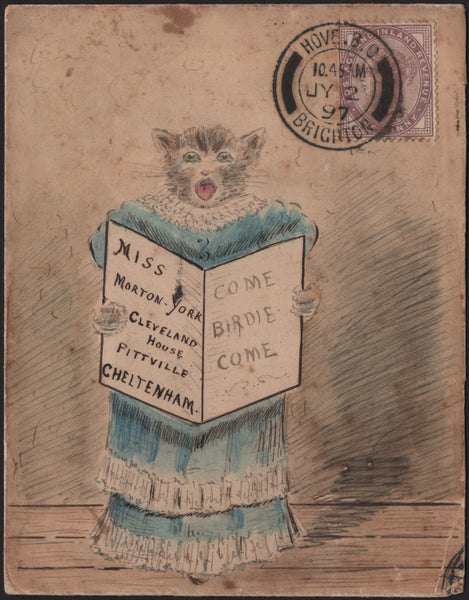 HOVE.B.O
10.45AM
JY 2
97
BRIGHTON
INLAND REVENUE
MISS
MORTON-YORK
CLEVELAND
HOUSE
PITTVILLE
CHELTENHAM.
COME
BIRDIE
COME